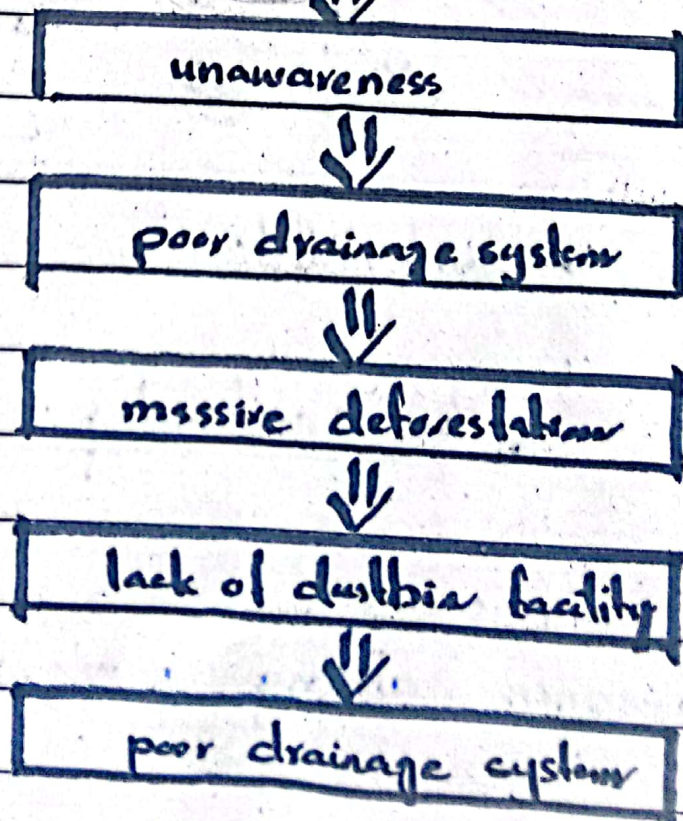 unawareness
poor drainage system
massive deforestation
lack of dustbin facility
poor drainage system